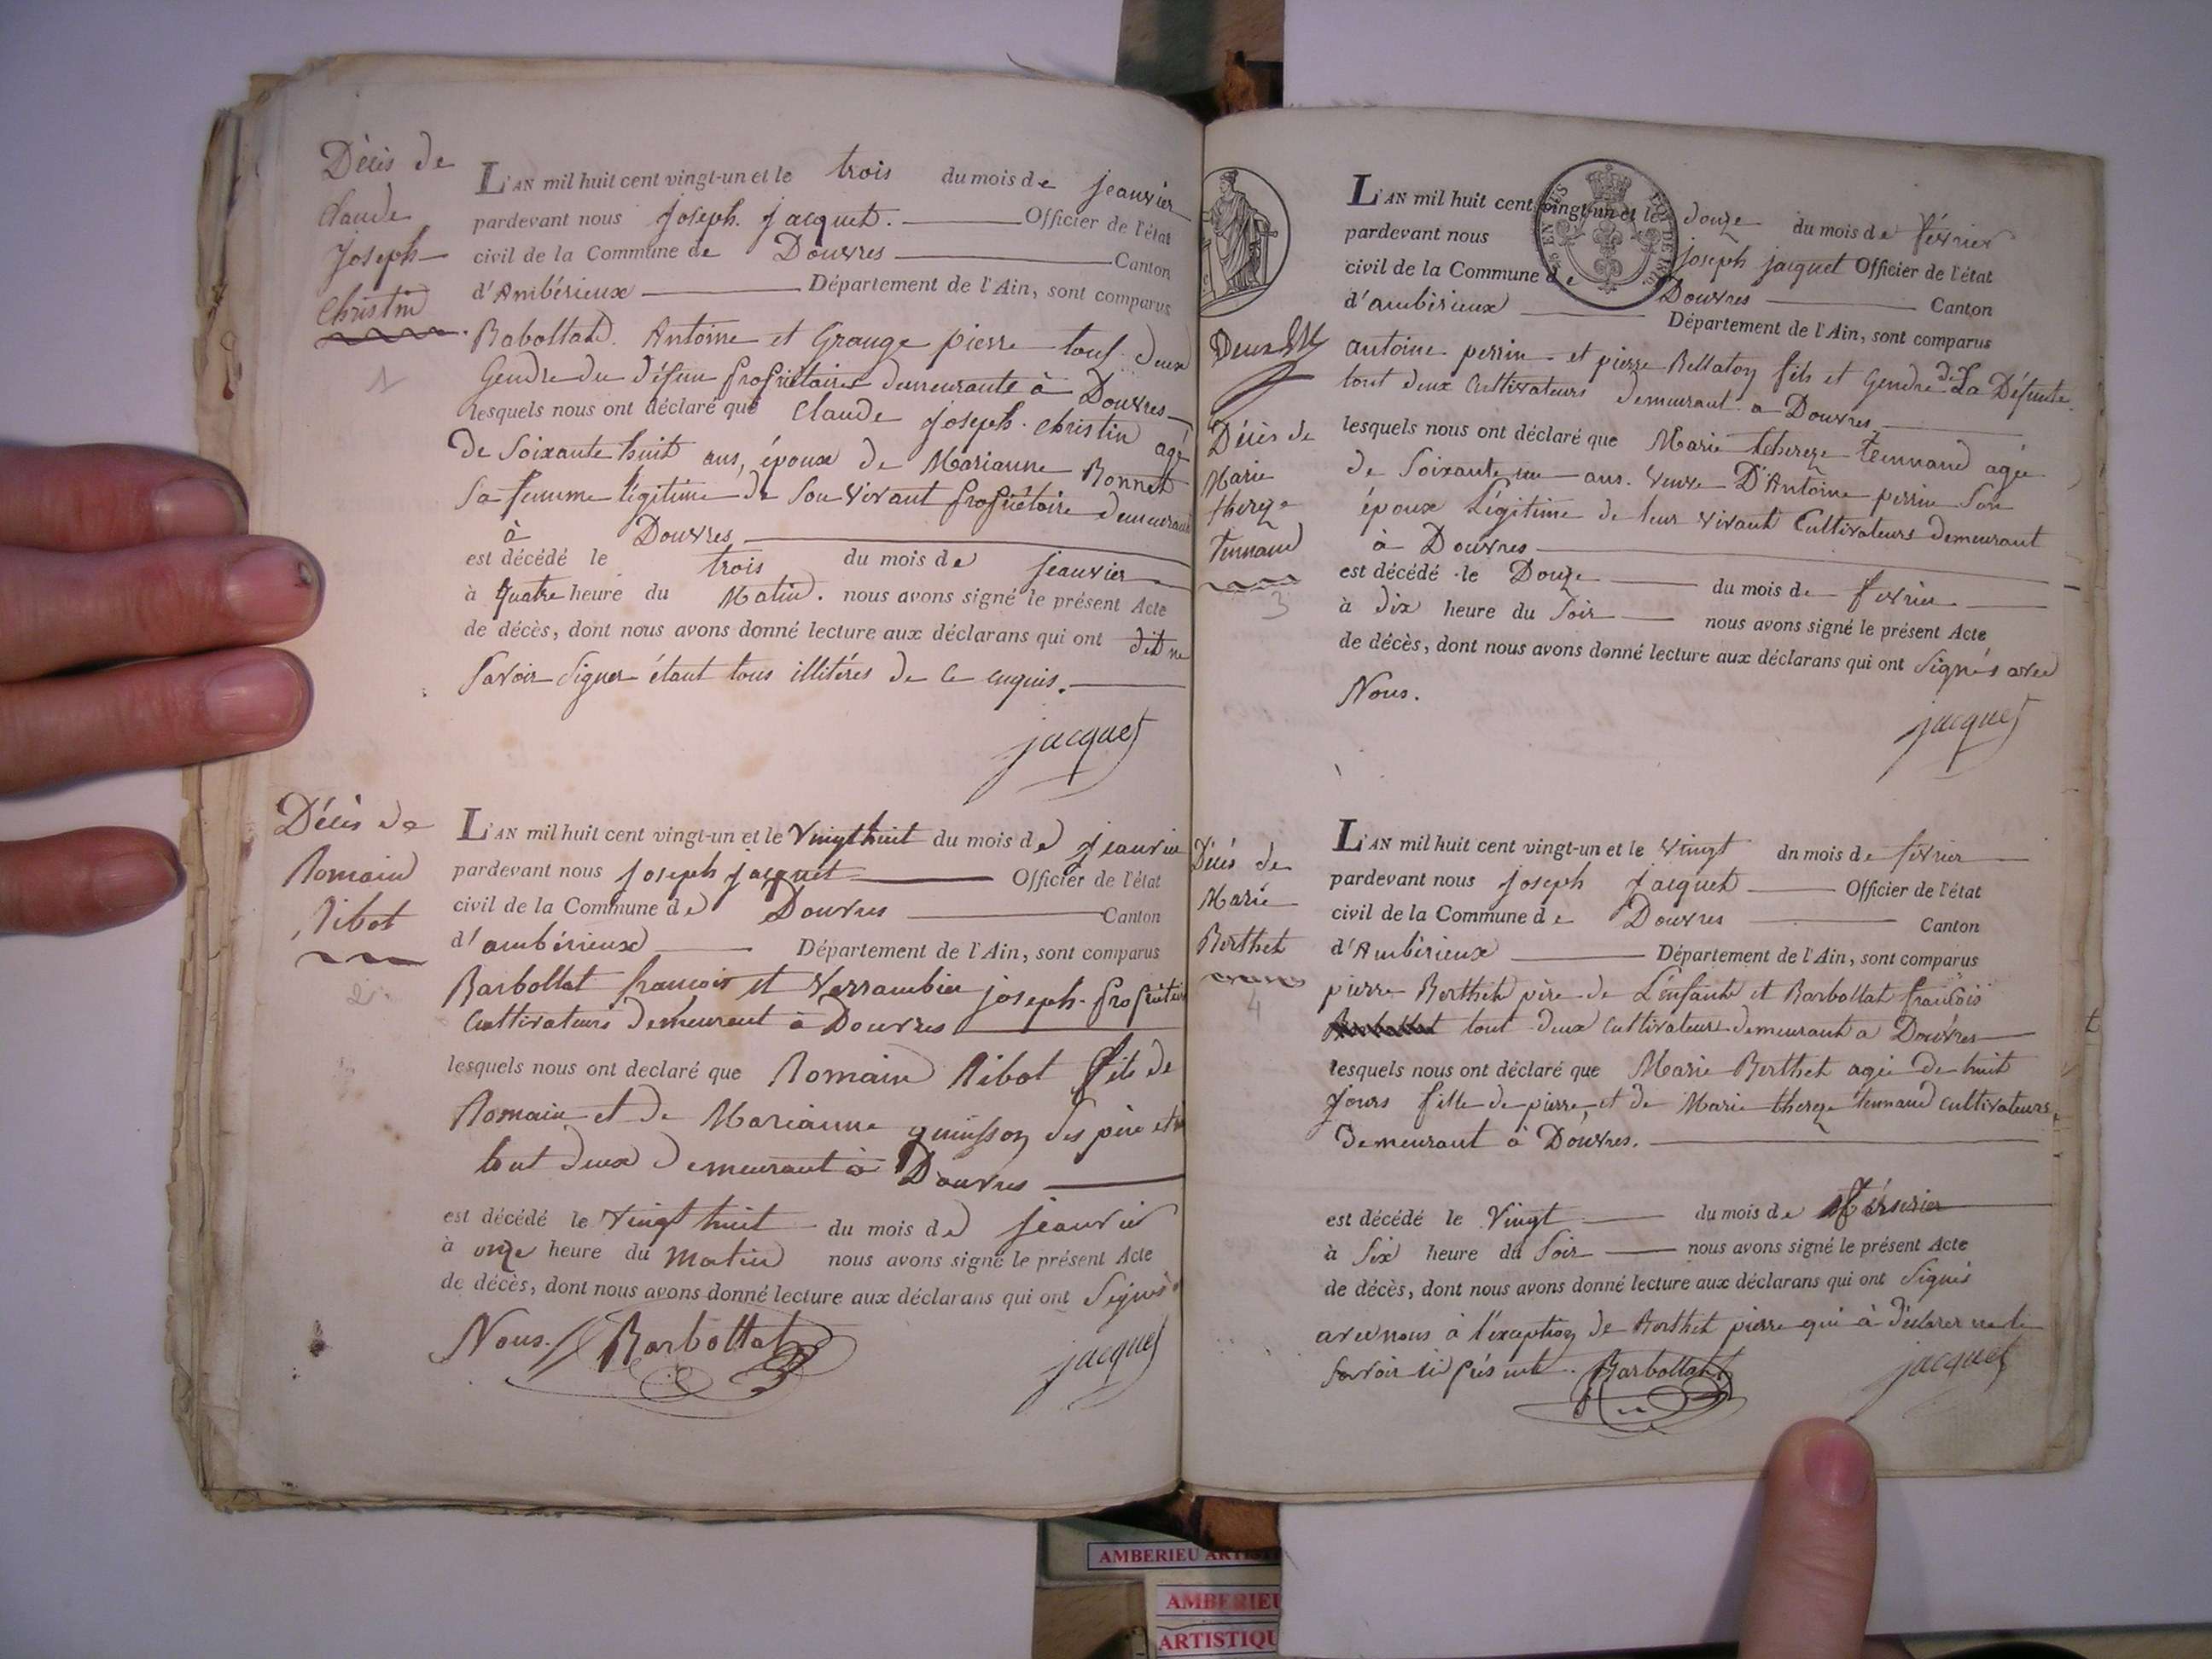 Décès de
Claude
Joseph
Christin
1
L'AN mil huit cent vingt-un et le trois du mois de jeanvier
pardevant nous joseph. jacquet. Officier de l'état
civil de la Commune de Douvres Canton
d'Ambérieux Département de l'Ain, sont comparus
Antoine et Grange pierre tous deux
Gendre du défun propriétaires demeurants à Douvres
lesquels nous ont déclaré que Claude joseph. christin agé
de soixante huit ans, époux de Marianne Bonnet
sa femme légitime de son vivant propriétaire demeurant
à Douvres
est décédé le trois du mois de jeanvier
à quatre heure du Matin. nous avons signé le présent Acte
de décès, dont nous avons donné lecture aux déclarans qui ont dit ne
savoir signer étant tous illitérés de ce enquis.
jacquet
Décès de
Romain
Ribot
2
L'AN mil huit cent vingt-un et le vingt huit du mois de jeanvier
pardevant nous joseph jacquet Officier de l'état
civil de la Commune de Douvres Canton
d'ambérieux Département de l'Ain, sont comparus
Barbollat francois et joseph
Cultivateurs demeurant à Douvres
lesquels nous ont declaré que Romain Ribot fils de
Romain et de Marianne des père et
tout deux demeurant à Douvres
est décédé le vingt huit du mois de jeanvier
à onze heure du matin nous avons signé le présent Acte
de décès, dont nous avons donné lecture aux déclarans qui ont signés
Nous. Barbollat
jacquet
Deux
Décès de
Marie
thereze
Tennand
3
L'AN mil huit cent vingt-un et le douze du mois de février
pardevant nous joseph jacquet Officier de l'état
civil de la Commune de Douvres Canton
d'ambérieux Département de l'Ain, sont comparus
antoine perrin et pierre fils et Gendre de La Défunte
tout deux Cultivateurs demeurant a Douvres
lesquels nous ont déclaré que Marie thereze tennand agée
de soixante un ans. veuve D'Antoine perrin son
époux Légitime de leur vivant Cultivateurs demeurant
à Douvres
est décédé le Douze du mois de fevrier
à dix heure du soir nous avons signé le présent Acte
de décès, dont nous avons donné lecture aux déclarans qui ont signés avec
Nous.
jacquet
Décés de
Marie
Berthet
4
L'AN mil huit cent vingt-un et le vingt du mois de février
pardevant nous joseph jacquet Officier de l'état
civil de la Commune de Douvres Canton
d'Ambérieux Département de l'Ain, sont comparus
pierre Berthet père de L'enfant et Barbollat francois
tout deux cultivateurs demeurant a Douvres
lesquels nous ont déclaré que Marie Berthet agée de huit
jours fille de pierre, et de Marie thereze tennand cultivateurs
demeurant à Douvres.
est décédé le Vingt du mois de
à six heure du soir nous avons signé le présent Acte
de décès, dont nous avons donné lecture aux déclarans qui ont signés
avec nous à l'exception de Berthet pierre qui à déclarer ne le
savoir Barbollat
jacquet
AMBERIEU
AMBERIEU